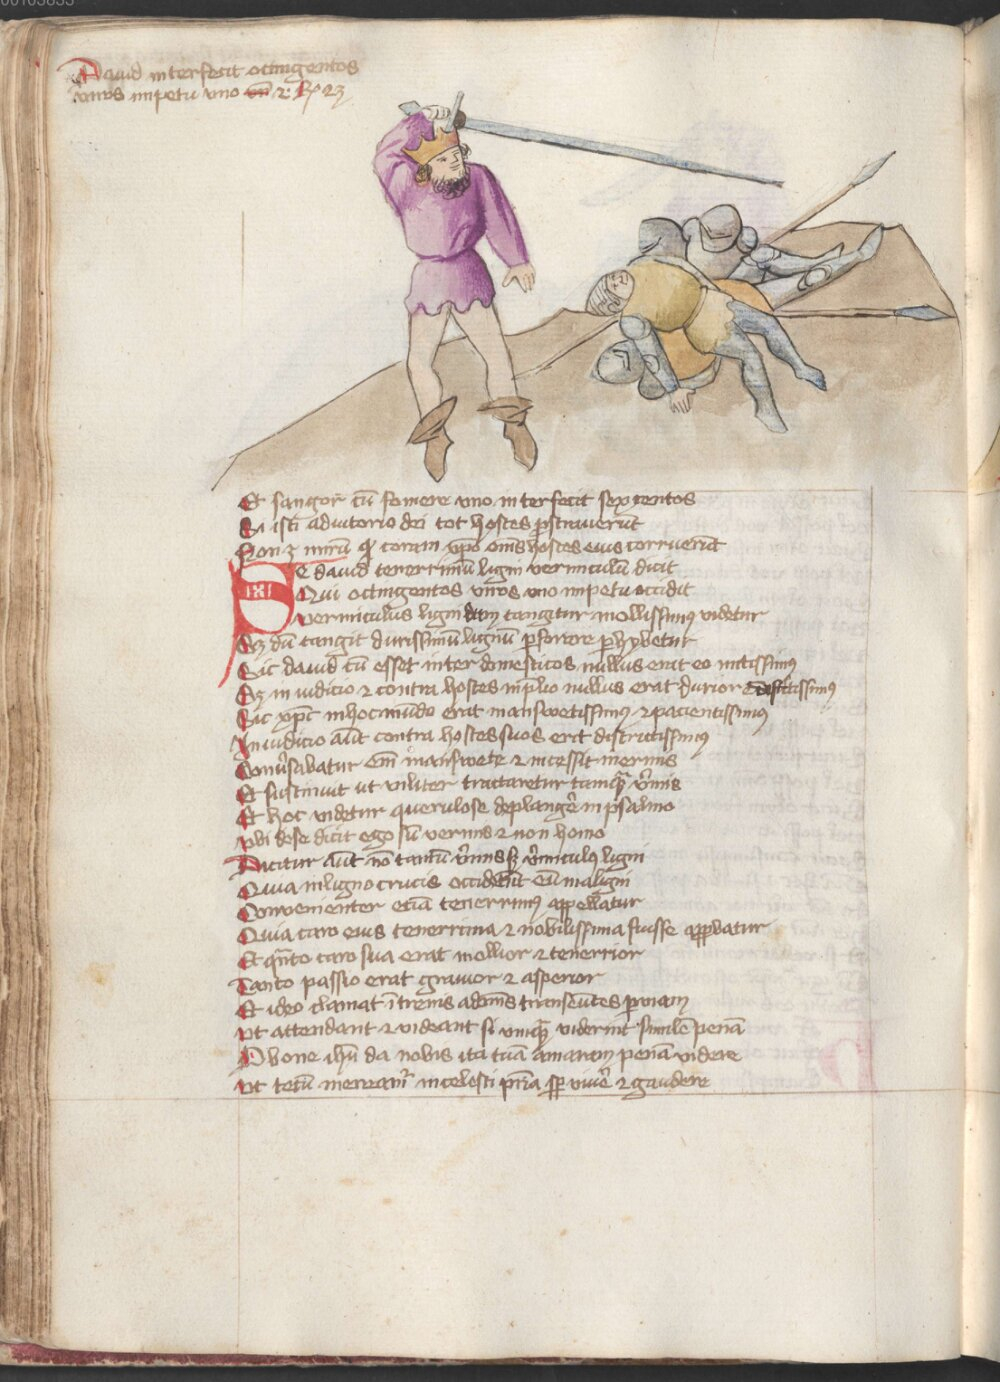 00103855
Dauid interfecit octingentos
viros impetu vno vn 2 Ro 23
Et sangor cū somere vno interfecit sexcentos
Si isti adiutorio dei tot hostes pstrauerūt
Non ē mirū qd coram xpo oms hostes eius corruerūt
SE dauid tenerrimū ligni vermiculū dicit
IXI
Qui octingentos viros vno impetu occidit
vermiculus ligni dum tangitur mollissimus videtur
Sz dū tangit durissimū lignū pforare phybetur
Sic dauid cū esset inter domesticos nullus erat eo mitissimus
Sz in iudicio 2 contra hostes in plio nullus erat durior
Sic xpc in hoc mūdo erat manswetissimus 2 pacientissimus
In iudicio aūt contra hostes suos erit districtissimus
Conūsabatur em manswete 2 incessit inermis
Et sustinuit ut viliter tractaretur tamqm vmis
Et hoc videtur querulose deplangere in psalmo
vbi de se dicit ego sū vermis 2 non homo
Dicitur aūt nō tantū vmis sz vmiculus ligni
Quia in ligno crucis occiderūt eū maligni
Conuenienter eciā tenerrimus appellatur
Quia caro eius tenerrima 2 nobilissima fuisse appbatur
Et qnto caro sua erat mollior 2 tenerior
Tanto passio erat grauior 2 asperior
Et ideo clamat ī trenis ad omīs transeūtes p viam
vt attendant 2 videant si vmqm viderint similē penā
O bone ihū da nobis ita tuā amaram penā videre
vt tecū mereamr in celesti pria sp viuē 2 gaudere